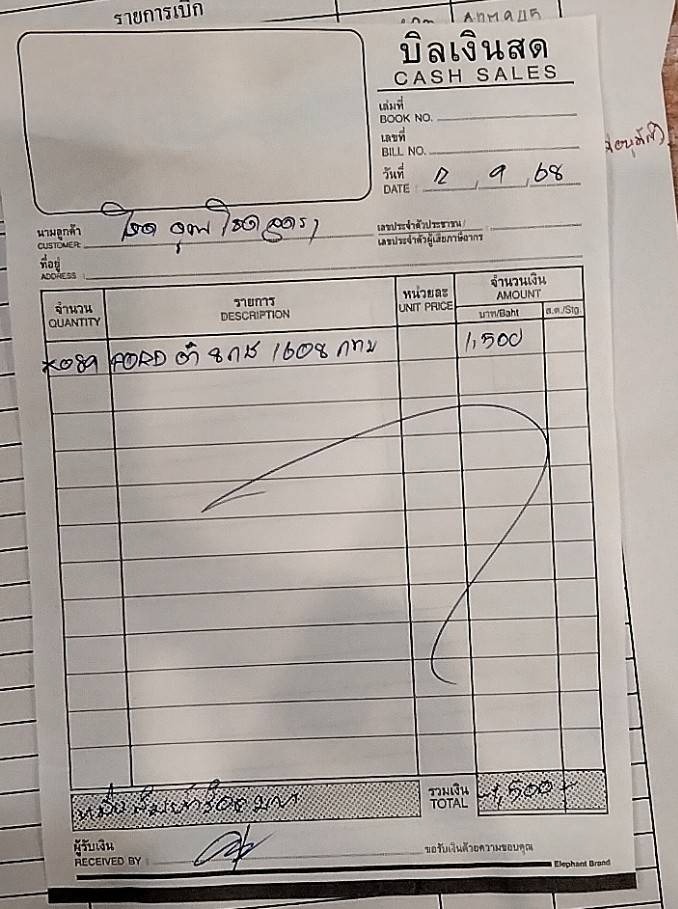 รายการเบิก
บิลเงินสด
CASH SALES
เล่มที่
BOOK NO.
เลขที่
BILL NO.
วันที่ 12 , 9 , 68
DATE
นามลูกค้า
CUSTOMER
เลขประจำตัวประชาชน/
เลขประจำตัวผู้เสียภาษีอากร
ที่อยู่
ADDRESS
จำนวน รายการ หน่วยละ จำนวนเงิน
QUANTITY DESCRIPTION UNIT PRICE AMOUNT
บาท/Baht ส.ต./Stg.
FORD ดำ 8กช 1608 กทม 1,500
รวมเงิน 1,500 -
TOTAL
ผู้รับเงิน ขอรับเงินด้วยความขอบคุณ
RECEIVED BY
Elephant Brand